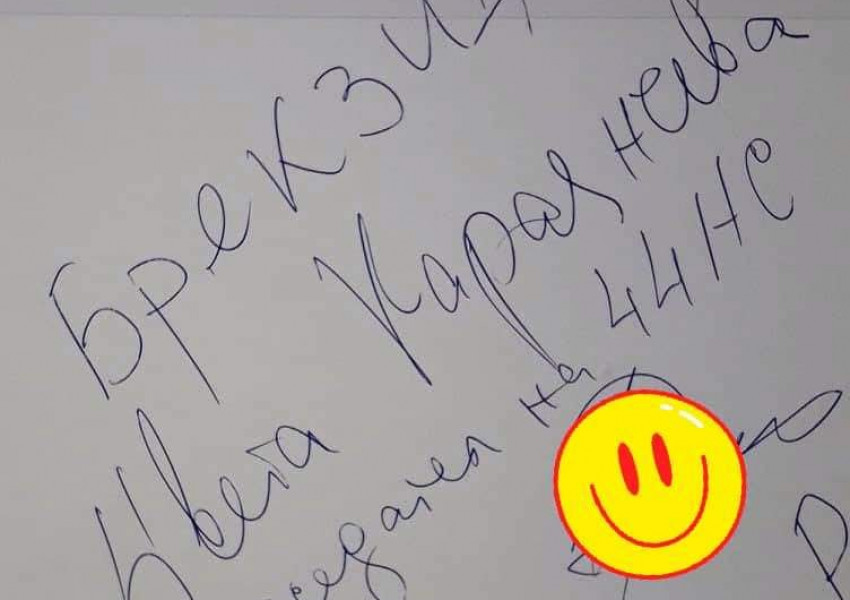 Брекзи
Цвета Караянева
седател на 44 НС